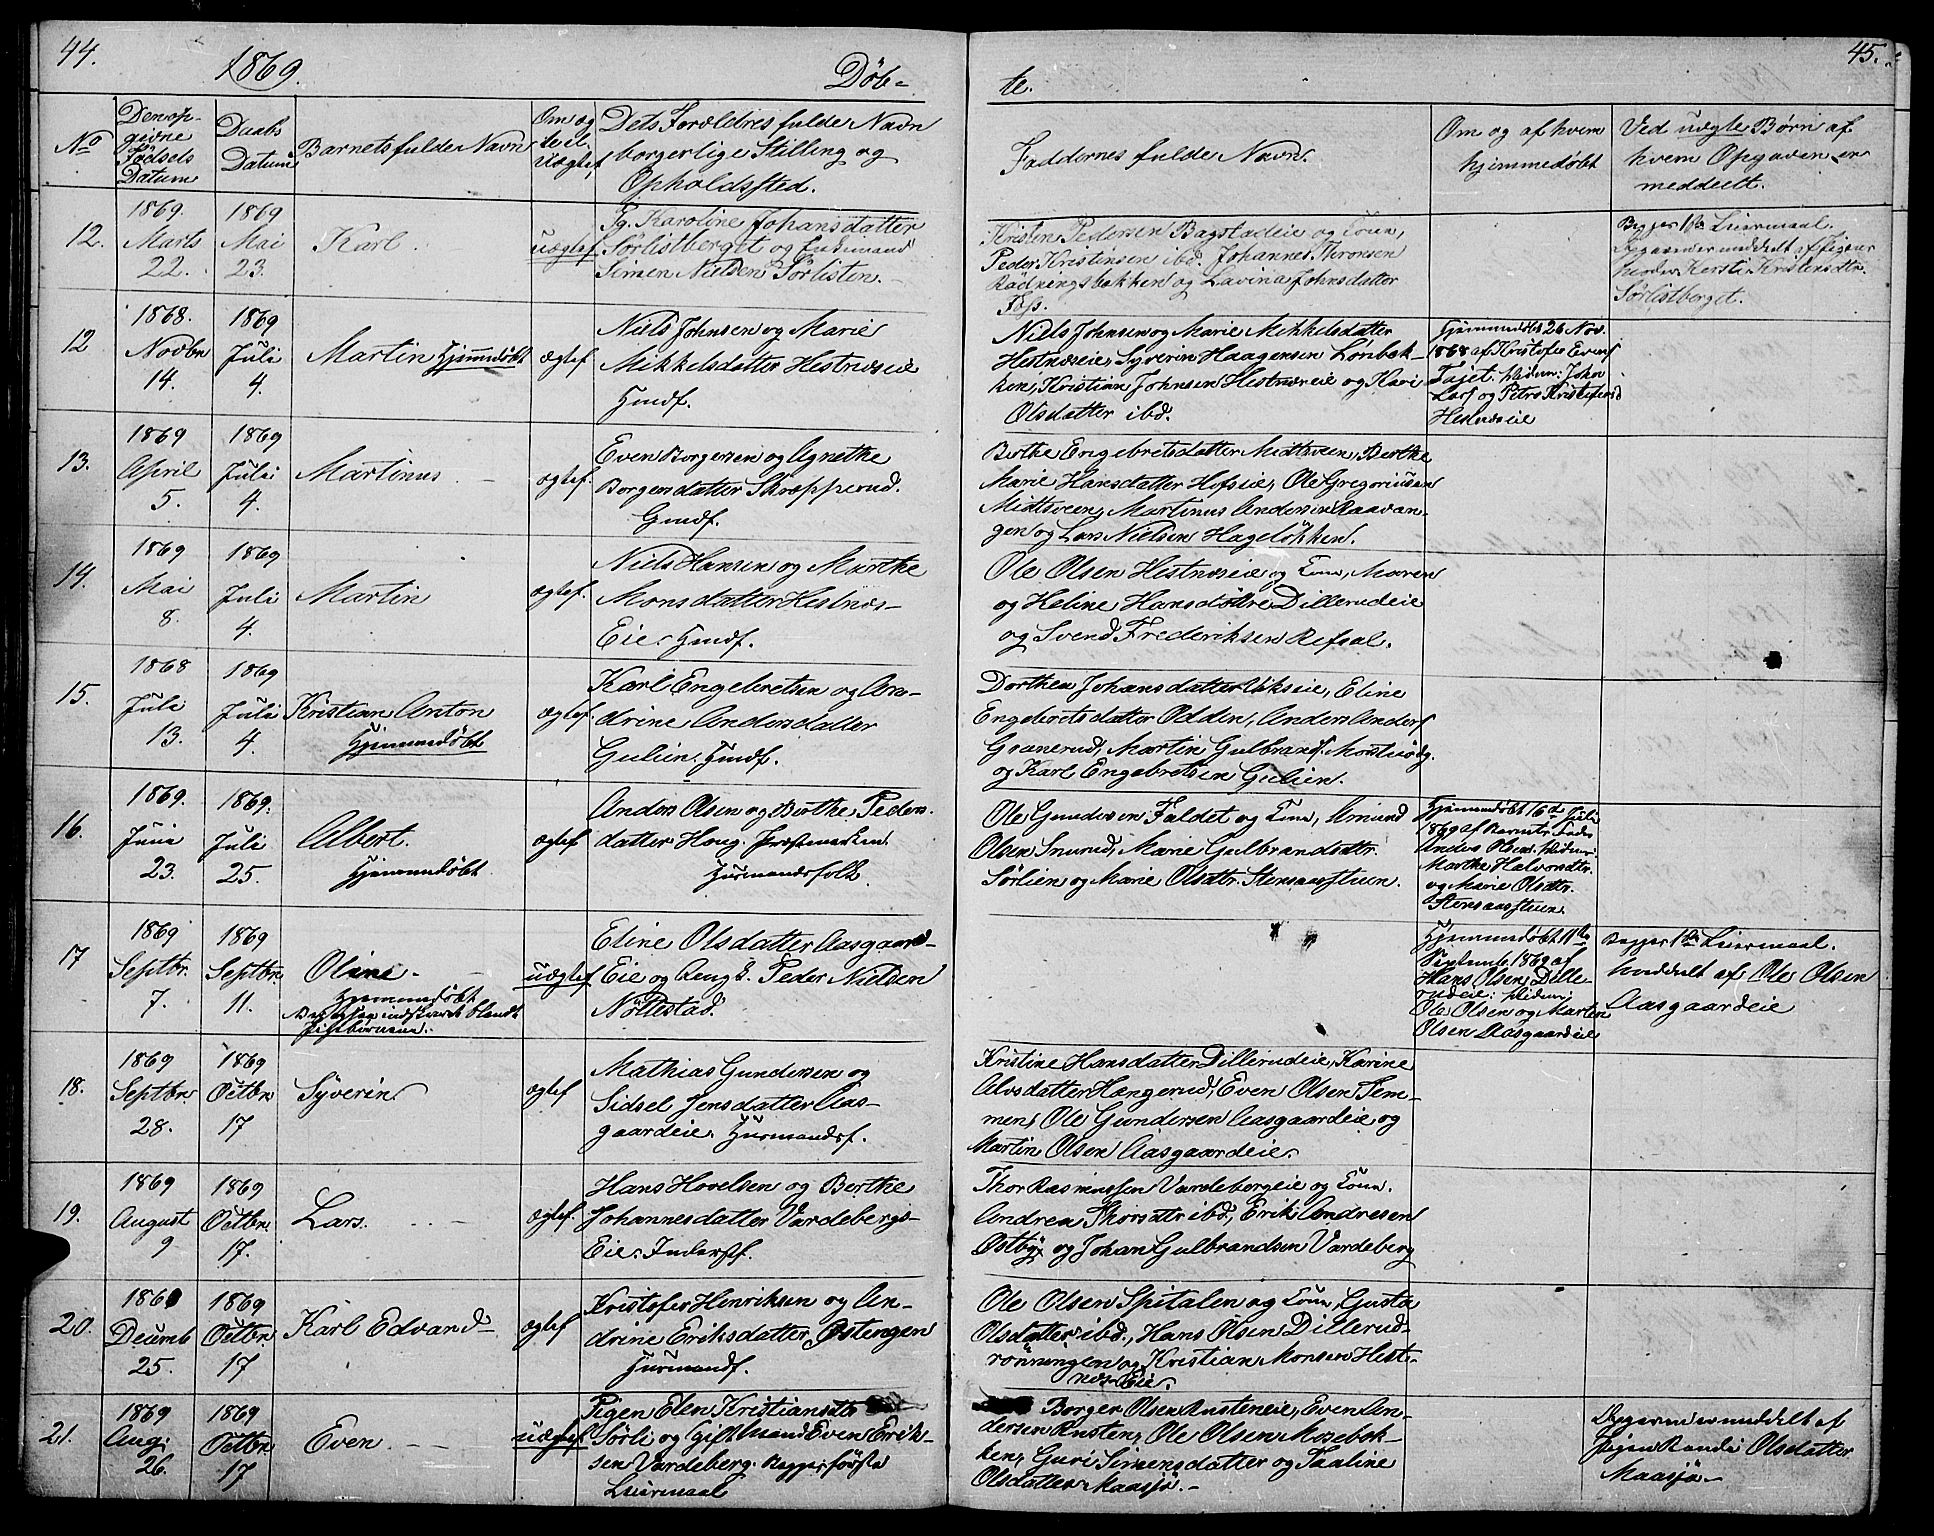 44.
1869.
Döb-
te.
45.
No
Den op-
givne
Fødsels
Datum
Daabs
Datum
Barnets fulde Navn
Om æg
te el.
Uægtef.
Dets Forældres fulde Navn
borgerlige Stilling og
Opholdssted.
Faddernes fulde Navn.
Om og af hvem
hjemmedøbt
Ved uægte Børn af
hvem Opgaven er
meddelt.
12.
1869.
Marts
22.
1869
Mai
23.
Karl
uægtef
Pg. Karoline Johansdatter
Sörlistberget og Enkemand
Simen Nielsen Sörlisten.
Kristen Pedersen Bagstadeie og Kone,
Peder Kristensen ibd. Johannes Thronsen
Rödningsbakken og Lavina Johnsdatter
Foss.
Begges 1ste Leiermaal.
Opgaven er meddelt af Pigens
Moder Kersti Kristensdtr.
Sörlistberget.
12
1868.
Novbr
14.
1869
Juli
4.
Martin Hjemmedøbt
ægtef.
Niels Johnsen og Marie
Mikkelsdatter Hestnæseie
Hmdf.
Niels Johnsen og Marie Mikkelsdatter
Hestnæseie, Syverin Haagensen Lönbek-
ken, Kristian Johnsen Hestnæseie og Kari
Olsdatter ibd.
Hjemmedøbt 26 Nov.
1868 af Kristofer Evens
Tajet. Vidner: Johan
Lars og Petro Kristofersd
Hestnæseie
13.
1869
April
5.
1869
Juli
4.
Martinus
ægtef.
Even Borgersen og Agnethe
Borgersdatter Skræpperud.
Gmdf.
Berthe Engebretsdatter Midtsveen, Berthe
Marie Hansdatter Hofseie, Ole Gregoriusen
Midtsveen, Martinus Andersen Raavan-
gen og Lars Nielsen Hagelökken.
14.
1869
Mai
8.
1869
Juli
4.
Martin
ægtef.
Niels Hansen og Marthe
Monsdatter Hestnæs-
Eie. Hmdf.
Ole Olsen Hestnæseie og Kone, Maren
og Heline Hansdöttre Dillerudeie
og Svend Frederiksen Refsal.
15.
1868
Juli
13.
1869
Juli
4.
Kristian Anton
Hjemmedøbt
ægtef.
Karl Engebretsen og An-
drine Andersdatter
Gulien. Hmdf.
Dorthea Johansdatter Vikseie, Eline
Engebretsdatter Odden, Anders Anders
Granerud, Martin Gulbrands.
og Karl Engebretsen Gulien.
16.
1869.
Juni
23.
1869.
Juli
25.
Albert.
Hjemmedøbt
ægtef
Anders Olsen og Berthe Peders-
datter Haug. Præstemarken
Husmandsfolk.
Ole Gundersen Faldet og Kone, Amund
Olsen Snurud, Marie Gulbrandsdtr.
Sörlien og Marie Olsdtr. Stensaasstuen.
Hjemmedøbt 16de Juli
1869 af Barnets Fader
Anders Olsen. Vidner:
Marthe Halvorsdtr.
og Marie Olsdtr.
Stensaasstuen.
17
1869
Septbr.
7.
1869
Septbr.
11.
Oline
Hjemmedøbt
blandt
uægtef
Eline Olsdatter Aasgaard-
Eie og Ungk. Peder Nielsen
Nöttestad.
Hjemmedøbt 11te
Septemb. 1869 af
Hans Olsen Dille-
rudeie: Vidner:
Ole Olsen og Marten
Olsen Aasgaardeie
Begges 1ste Leiermaal.
Meddelt af Ole Olsen
Aasgaardeie
18.
1869
Septbr.
28.
1869
Octbr.
17
Syverin
ægtef
Mathias Gundersen og
Sidsel Jensdatter Aas-
gaardeie. Husmandsf.
Kristine Hansdatter Dillerudeie, Karine
Alvsdatter Hængerud, Even Olsen Tem-
men, Ole Gundersen Aasgaardeie og
Martin Olsen Aasgaardeie.
19.
1869
August
9
1869
Octbr.
17.
Lars.
ægtef.
Hans Hovelsen og Berthe
Johannesdatter Vardebergs-
Eie. Inderstf.
Thor Rasmussen Vardebergeie og Kone.
Andrea Thorsdtr ibd., Erik Andresen
Östby og Johan Gulbrandsen Vardeberg
20.
1868
Decemb
25.
1869
Octbr.
17
Karl Edvard
ægtef
Kristofer Henriksen og An-
drine Eriksdatter Østengen
Husmandf.
Ole Olsen Spitalen og Kone, Gusta
Olsdatter ibd., Hans Olsen Dillerud-
rönningen og Kristian Monsen Hest-
næs Eie.
21.
1869
Aug.
26.
1869
Octbr.
17
Even
uægtef
Pigen Elen Kristiansdtr
Sörli og Gift Mand Even Erik-
sen Vardeberg. Begges förste
Leiermaal
Borger Olsen Rusteneie, Even An-
dersen Rusten, Ole Olsen Mosebak-
ken, Guri Simensdatter og Paaline
Olsdatter Maasjö.
Opgaven er meddelt af
Pigen Randi Olsdatter
Maasjø.